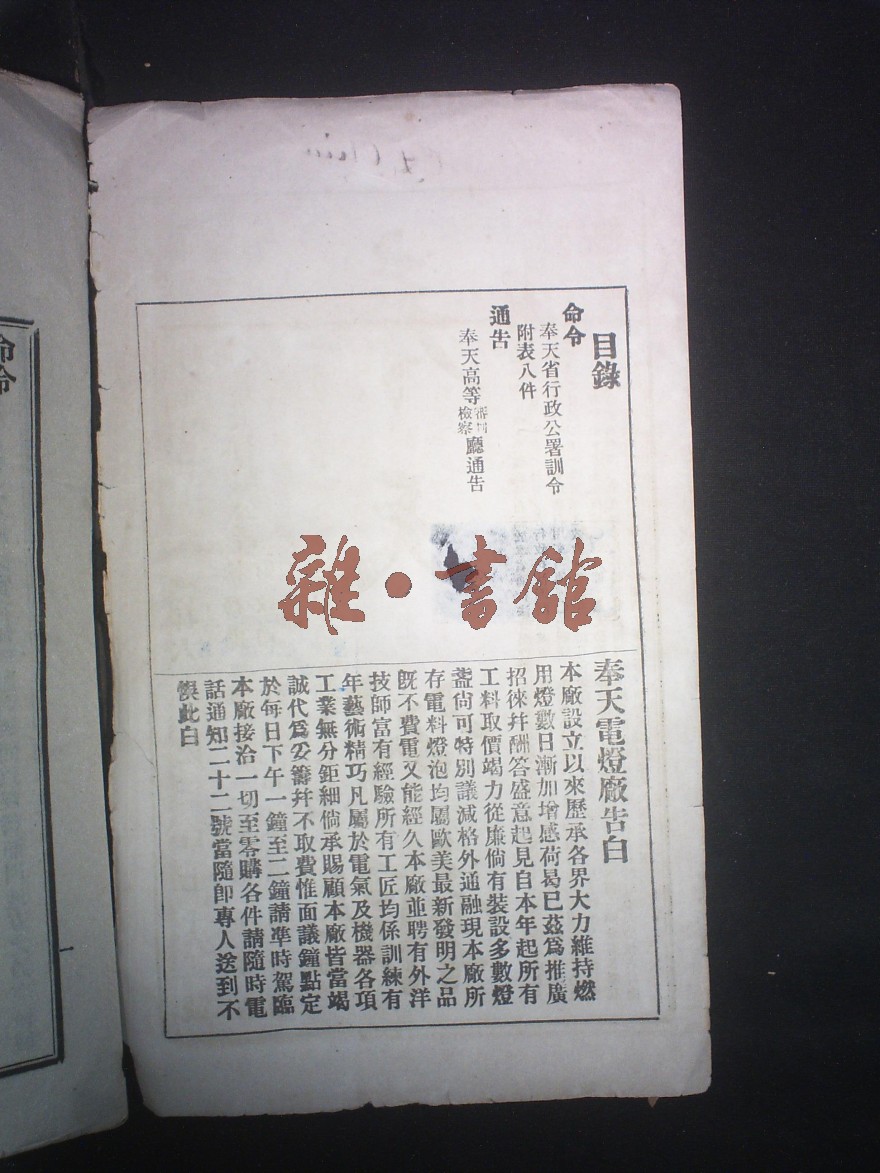 目錄
命令
奉天省行政公署訓令
附表八件
通告
奉天高等審判檢察廳通告
奉天電燈廠告白
本廠設立以來歷承各界大力維持燃
用燈數日漸加增感荷曷已茲爲推廣
招徠幷酬答盛意起見自本年起所有
工料取價竭力從廉倘有裝設多數燈
盞尙可特別議減格外通融現本廠所
存電料燈泡均屬歐美最新發明之品
旣不費電又能經久本廠並聘有外洋
技師富有經驗所有工匠均係訓練有
年藝術精巧凡屬於電氣及機器各項
工業無分鉅細倘承賜顧本廠皆當竭
誠代爲妥籌幷不取費惟面議鐘點定
於每日下午一鐘至二鐘請準時駕臨
本廠接洽一切至零購各件請隨時電
話通知二十二號當隨卽專人送到不
悞此白
命令
雜·書館